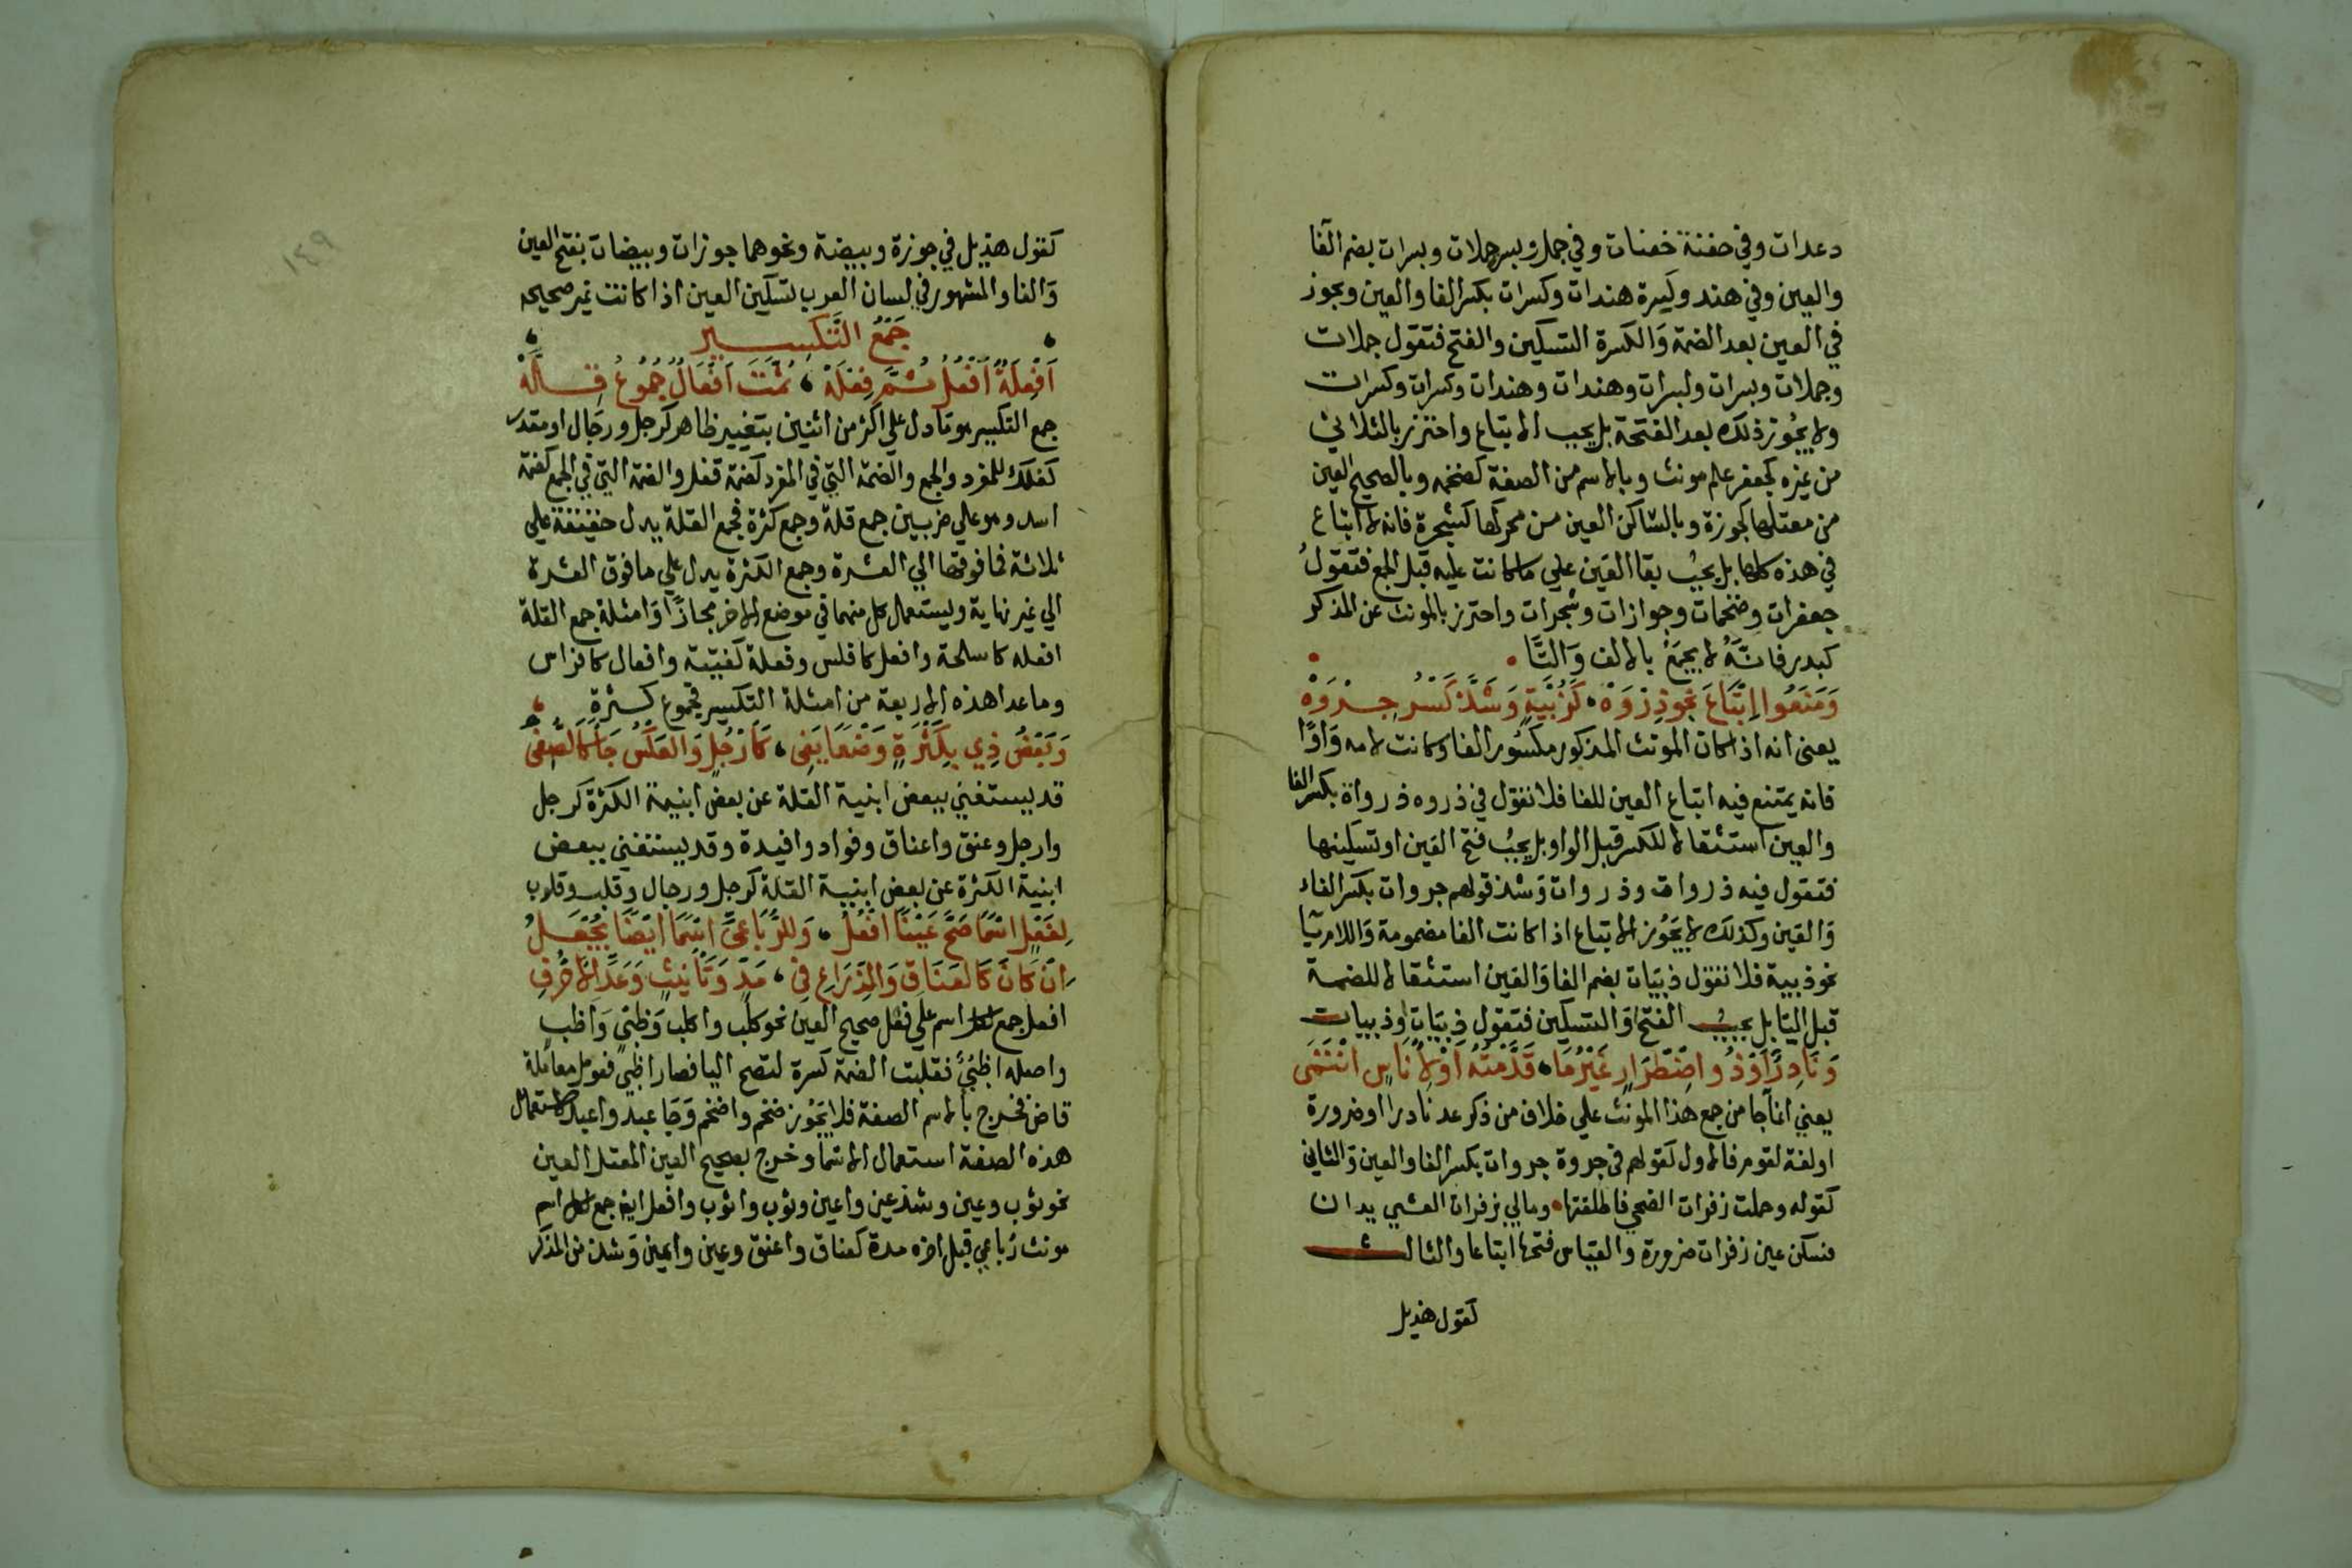 دعدات وفي حفنة خفنات وفي جمل وبسر جملات وبسرات بضم الفا
والعين وفي هند وكسرة هندات وكسرات بكسر الفا والعين ويجوز
في العين بعد الضمة والكسرة التسكين والفتح فتقول جملات
وجملات وبسرات وبسرات وهندات وهندات وكسرات وكسرات
ولا يجوز ذلك بعد الفتحة بل يجب الاتباع واحترز بالثلاثي
من غيره كجعفر علم مونث وبالاسم من الصفة كضخمه وبالصحيح العين
من معتلها كجوزة وبالساكن العين من محركها كشجرة فانه لا اتباع
في هذه كلها بل يجب بقا العين على ما كانت عليه قبل الجمع فتقول
جعفرات وضخمات وجوازات وشجرات واحترز بالمونث عن المذكر
كبدر فانه لا يجمع بالالف والتا
وَمَنَعُوا اِتْبَاعَ نَحْوِ ذِرْوَهْ • وَزُبْيَةٍ وَشَذَّ كَسْرُ جِرْوَهْ
يعنى انه اذا كان المونث المذكور مكسور الفا وكانت لامه واوا
فانه يمتنع فيه اتباع العين للفا فلا نقول في ذروه ذرواة بكسر الفا
والعين استثقالا للكسر قبل الواو بل يجب فتح العين او تسكينها
فتقول فيه ذروات وذروات وشذ قولهم جروات بكسر الفاء
والعين وكذلك لا يجوز الاتباع اذا كانت الفا مضمومة واللام يا
نحو ذبية فلا نقول ذبيات بضم الفا والعين استثقالا للضمة
قبل اليا بل يجب الفتح او التسكين فتقول ذبيات او ذبيات
وَنَادِرٌ اَوْ ذُو اضْطِرَارٍ غَيْرُ مَا • قَدَّمْتُهُ اَوْ لِاُنَاسٍ انْتَمَى
يعني انما جا من جمع هذا المونث على خلاف من ذكر عد نادرا او ضرورة
او لغة لقوم فالاول كقولهم في جروة جروات بكسر الفا والعين والثاني
كقوله وحملت زفرات الضحى فاطقتها • ومالي بزفرات العشي يدان
فسكن عين زفرات ضرورة والقياس فتحها اتباعا والثالث
كقول هذيل
١٤٩
كقول هذيل في جوزة وبيضة ونحوهما جوزات وبيضات بفتح العين
والفا والمشهور في لسان العرب تسكين العين اذا كانت غير صحيحه
جَمْعُ التَّكْسِيرِ
اَفْعِلَةٌ اَفْعُلُ ثُمَّ فِعْلَهْ ، ثُمَّتَ اَفْعَالٌ جُمُوعُ قِلَّهْ
جمع التكسير هو ما دل على اكثر من اثنين بتغيير ظاهر كرجل ورجال او مقدر
كفلك للمفرد والجمع والضمة التي في المفرد كضمة قفل والضمة التي في الجمع كضمة
اسد وهو على ضربين جمع قلة وجمع كثرة فجمع القلة يدل حقيقة على
ثلاثة فما فوقها الى العشرة وجمع الكثرة يدل على ما فوق العشرة
الي غير نهاية ويستعمل كل منهما في موضع الاخر مجازا وامثلة جمع القلة
افعله كاسلحة وافعل كافلس وفعلة كفتية وافعال كافراس
وما عدا هذه الاربعة من امثلة التكسير فجموع كثرة
وَبَعْضُ ذِي بِكَثْرَةٍ وَضْعًا يَفِي ، كَاَرْجُلٍ وَالعَكْسُ جَا كَالصُّفِي
قد يستغني ببعض ابنية القلة عن بعض ابنية الكثرة كرجل
وارجل وعنق واعناق وفواد وافيدة وقد يستغني ببعض
ابنية الكثرة عن بعض ابنية القلة كرجل ورجال وقلب وقلوب
لِفَعْلٍ اسْمًا صَحَّ عَيْنًا اَفْعُلُ ، وَلِلرُّبَاعِيِّ اسْمًا اَيْضًا يُجْعَلُ
اِنْ كَانَ كَالعَنَاقِ وَالذِّرَاعِ فِي ، مَدٍّ وَتَانِيثٍ وَعَدِّ الاَحْرُفِ
افعل جمع لكل اسم على فعل صحيح العين نحو كلب واكلب وظبي واظب
واصله اظبي فقلبت الضمة كسرة لتصح اليا فصار اظبي فعومل معاملة
قاض فخرج بالاسم الصفة فلا يجوز ضخم واضخم وجا عبد واعبد لاستعمال
هذه الصفة استعمال الاسما وخرج بصحيح العين المعتل العين
نحو ثوب وعين وشذ عين واعين وثوب واثوب وافعل ايضا جمع لكل اسم
مونث رباعي قبل اخره مدة كعناق واعنق ويمين وايمن وشذ من المذكر